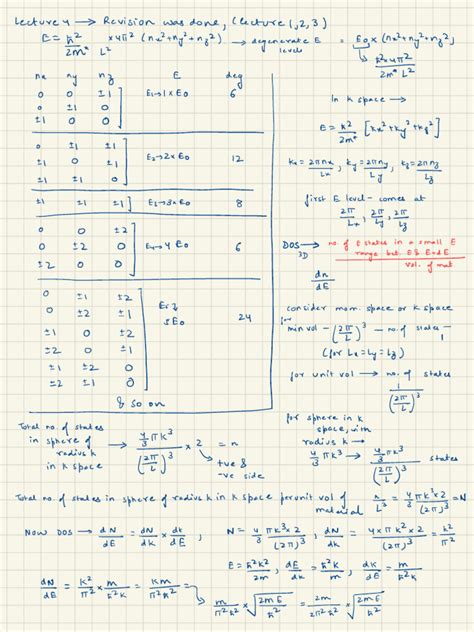 Lecture 4 → Revision was done, (Lecture 1, 2, 3)
E = ħ²/2m* × 4π²/L² (nx² + ny² + nz²) → degenerate E levels = E₀ × (nx² + ny² + nz²)
ħ² × 4π²/2m* L²
nx ny nz E deg
0 0 ±1
0 ±1 0 E₁→1×E₀ 6
±1 0 0
0 ±1 ±1
±1 0 ±1 E₂→2×E₀ 12
±1 ±1 0
±1 ±1 ±1 ] E₃→3×E₀ 8
0 0 ±2
0 ±2 0 E₄→4E₀ 6
±2 0 0
0 ±1 ±2
0 ±2 ±1 E₅→
±1 0 ±2 5E₀ 24
±2 0 ±1
±1 ±2 0
±2 ±1 0
& so on
In k space →
E = ħ²/2m* [kx² + ky² + kz²]
kx = 2πnx/Lx, ky = 2πny/Ly, kz = 2πnz/Lz
first E level - comes at
2π/Lx, 2π/Ly, 2π/Lz
DOS 3D → no. of E states in a small E range bet. E & E+dE / vol. of mat
dn/dE
consider mom. space or k space
for min vol - (2π/L)³ → no. of states - 1
(for Lx = Ly = Lz)
for unit vol → no. of states
1/(2π/L)³
for sphere in k space, with radius k →
4/3 πk³ / (2π/L)³ states
Total no. of states in sphere of radius k in k space → 4/3 πk³ / (2π/L)³ × 2 = n
→ +ve & -ve side
Total no. of states in sphere of radius k in k space per unit vol of material n/L³ = 4/3 πk³ × 2 / (2π)³ = N
Now DOS → dN/dE = dN/dk × dk/dE, N = 4/3 πk³ × 2 / (2π)³, dN/dk = 4 × πk² × 2 / (2π)³
E = ħ²k²/2m, dE/dk = ħ²k/m, dk/dE = m/ħ²k
dN/dE = k²/π² × m/ħ²k = km/π²ħ² = m/π²ħ² × √(2mE/ħ²) = 2m/2π²ħ² × √(2mE/ħ²)